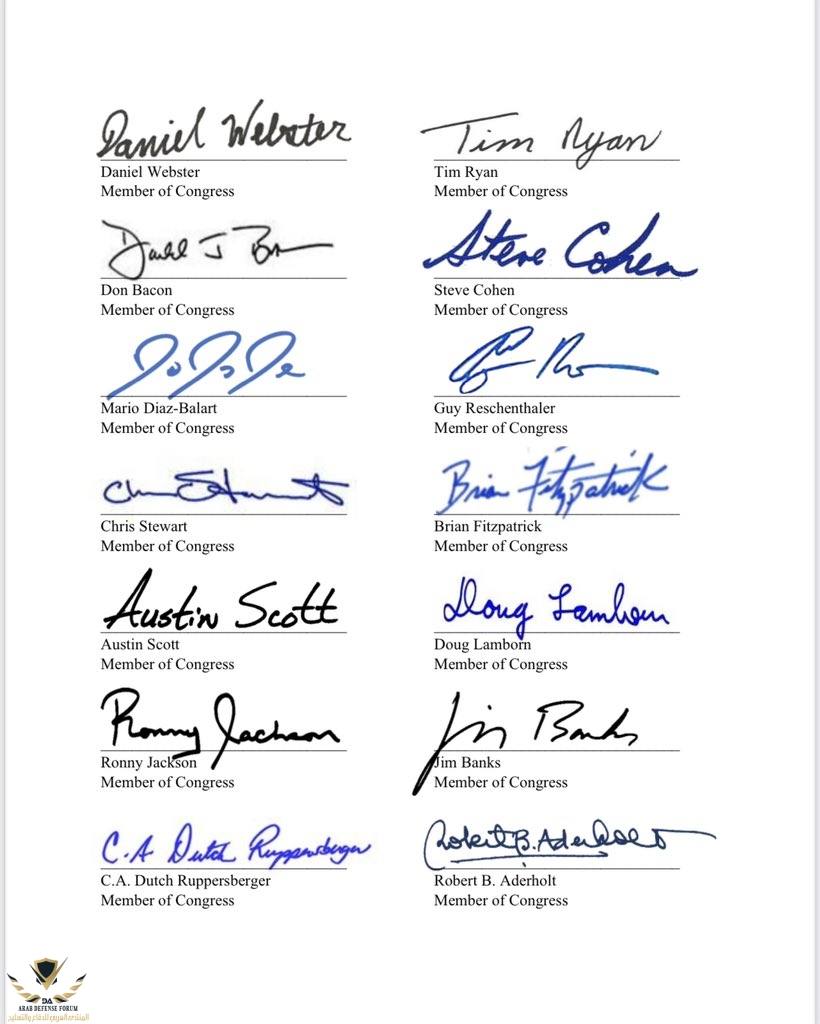 Daniel Webster
Tim Ryan
Daniel Webster
Member of Congress
Tim Ryan
Member of Congress
Steve Cohen
Don Bacon
Member of Congress
Steve Cohen
Member of Congress
Mario Diaz-Balart
Member of Congress
Guy Reschenthaler
Member of Congress
Brian Fitzpatrick
Chris Stewart
Member of Congress
Brian Fitzpatrick
Member of Congress
Austin Scott
Doug Lamborn
Austin Scott
Member of Congress
Doug Lamborn
Member of Congress
Ronny Jackson
Jim Banks
Ronny Jackson
Member of Congress
Jim Banks
Member of Congress
C.A Dutch Ruppersberger
Robert B. Aderholt
C.A. Dutch Ruppersberger
Member of Congress
Robert B. Aderholt
Member of Congress
DA
ARAB DEFENSE FORUM
المنتدى العربي للدفاع والتسليح